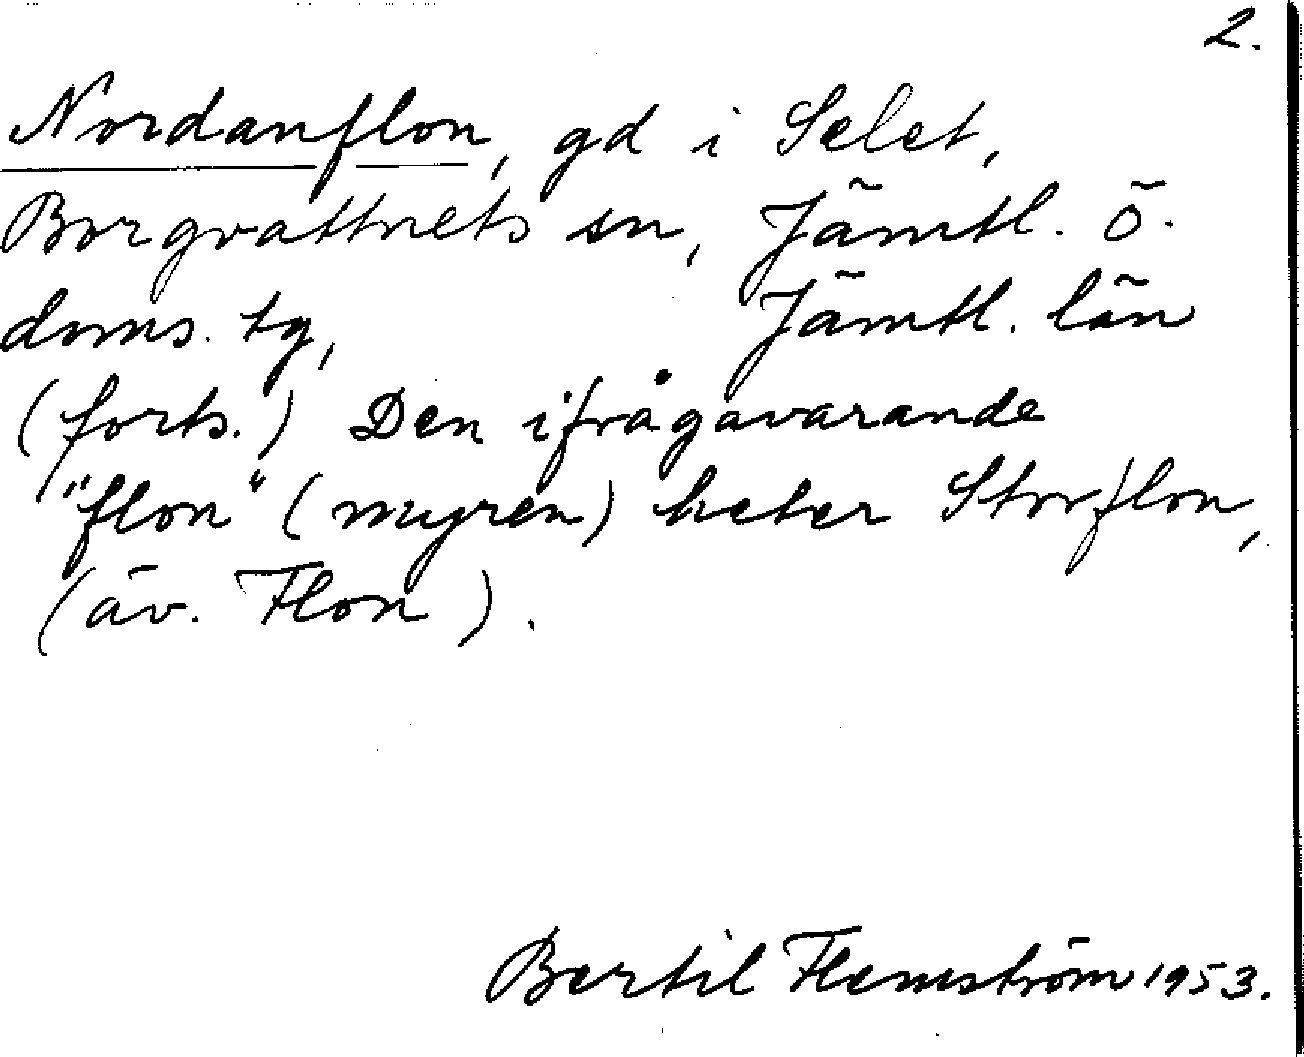 2.
Nordanflon, gd i Selet,
Borgvattnets sn, Jämtl. ö.
doms. tg, Jämtl. län
(forts.) Den ifrågavarande
"flon" (myren) heter Storflon,
(äv. Flon).
Bertil Flemström 1953.